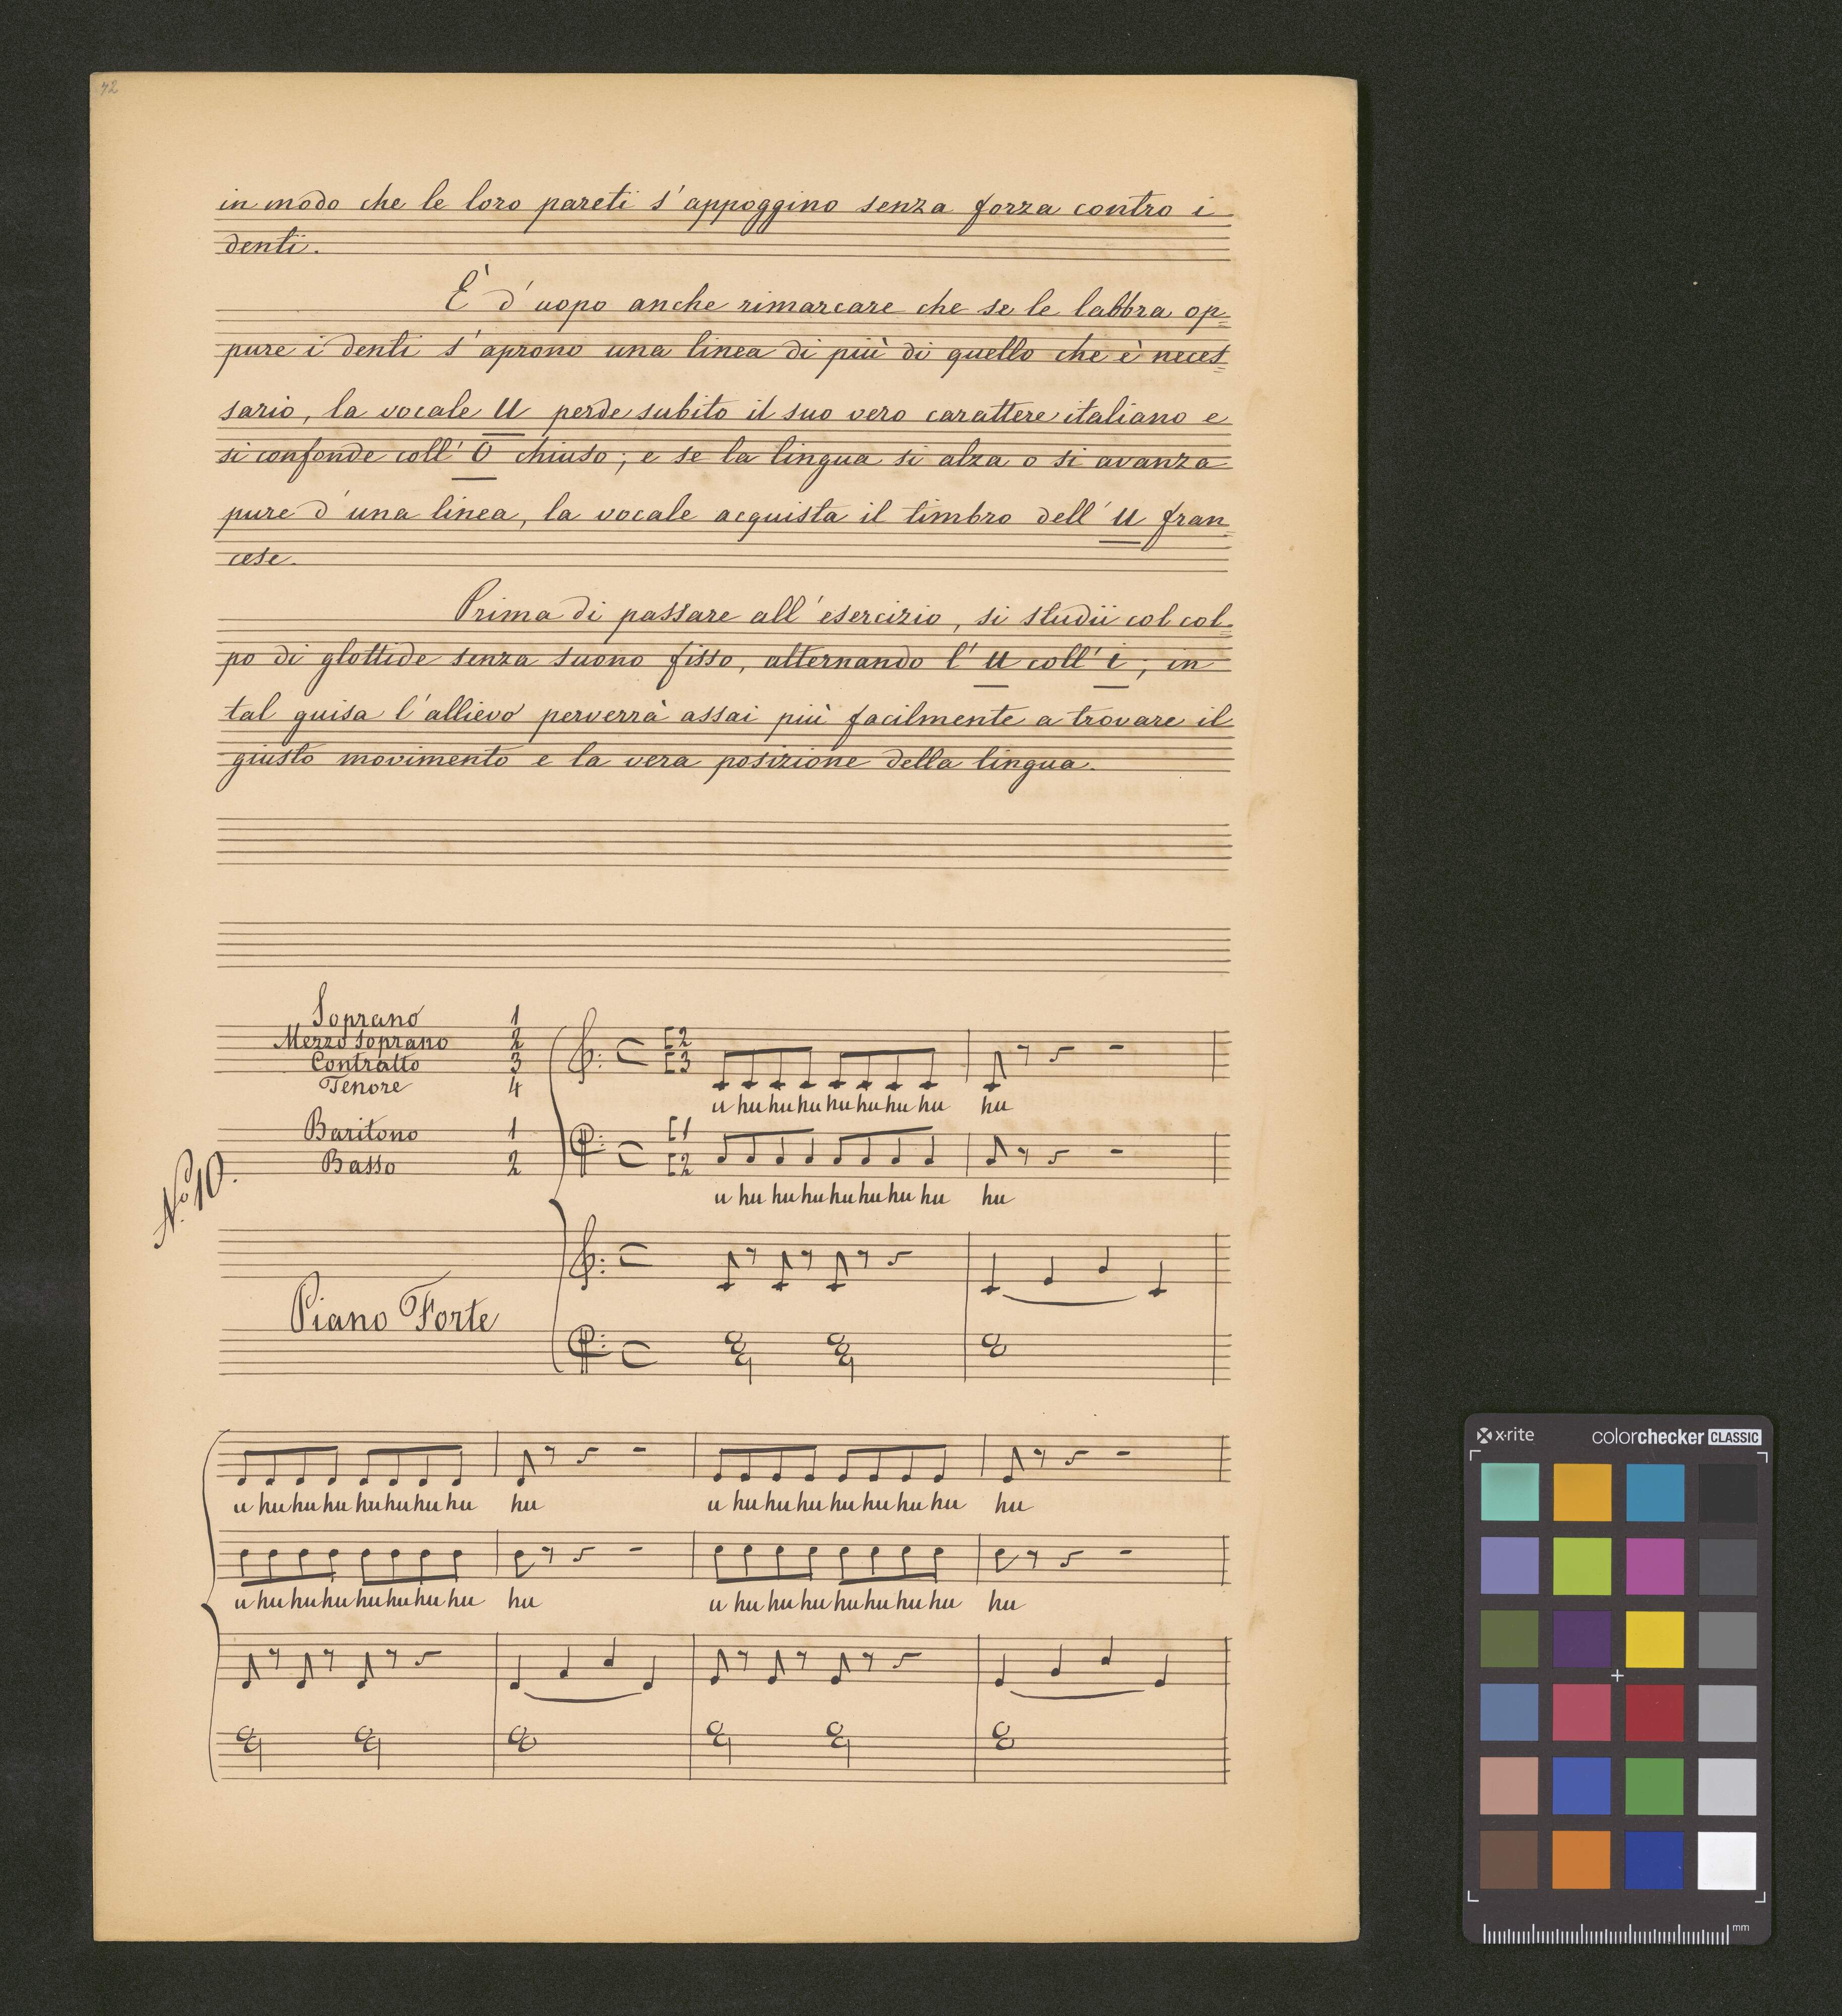 42
in modo che le loro pareti s'appoggino senza forza contro i
denti.
È d'uopo anche rimarcare che se le labbra op=
pure i denti s'aprono una linea di più di quello che è neces=
sario, la vocale U perde subito il suo vero carattere italiano e
si confonde coll'O chiuso; e se la lingua si alza o si avanza
pure d'una linea, la vocale acquista il timbro dell'U fran=
cese.
Prima di passare all'esercizio, si studii col col=
po di glottide senza suono fisso, alternando l'u coll'i; in
tal guisa l'allievo perverrà assai più facilmente a trovare il
giusto movimento e la vera posizione della lingua.
Soprano 1
Mezzo Soprano 2
Contralto 3
Tenore 4
E2
E3
u hu hu hu hu hu hu hu hu
Baritono 1
Basso 2
E1
E2
u hu hu hu hu hu hu hu hu
No. 10.
Piano Forte
u hu hu hu hu hu hu hu hu u hu hu hu hu hu hu hu hu
u hu hu hu hu hu hu hu hu u hu hu hu hu hu hu hu hu
x-rite colorchecker CLASSIC
mm